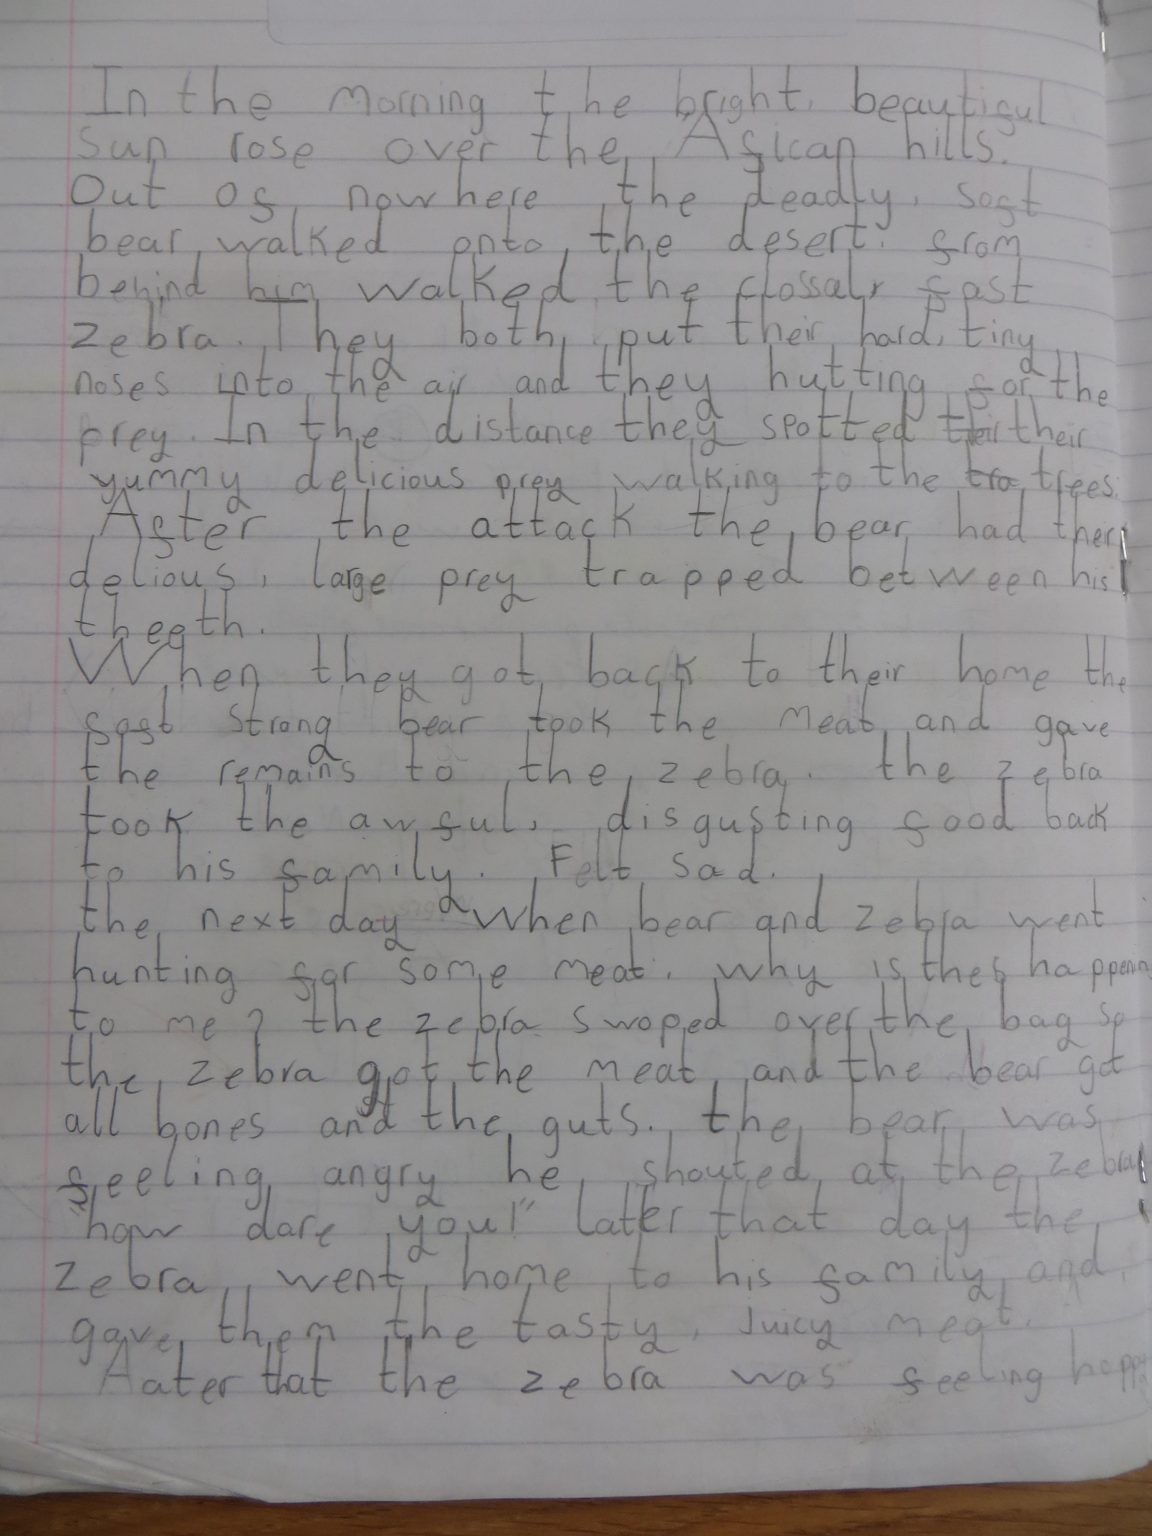 In the morning the bright, beautiful
sun rose over the African hills.
Out of nowhere the deadly, soft
bear walked onto the desert. from
behind him walked the clossaly fast
zebra. They both put their hard, tiny
noses into the air and they hutting for the
prey. In the distance they spotted their their
yummy delicious prey walking to the tra trees.
After the attack the bear had ther
delious, large prey trapped between his
theeth.
When they got back to their home the
fast strong bear took the meat and gave
the remains to the zebra. the zebra
took the awful, disgusting food back
to his family. Felt sad.
the next day When bear and zebra went
hunting for some meat. why is thes happening
to me? the zebra swoped over the bag so
the zebra got the meat and the bear got
all bones and the guts. the bear was
feeling angry he shouted at the zebra
"how dare you!" later that day the
zebra went home to his family and
gave them the tasty, juicy meat.
Aater that the zebra was feeling happy